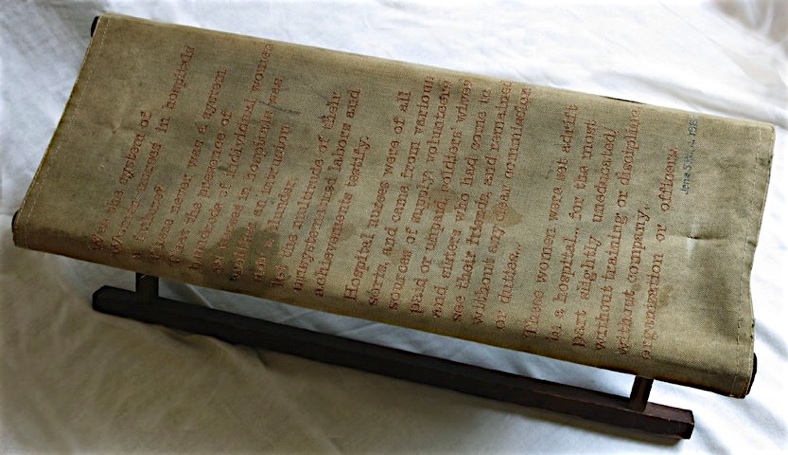 Was the system of
women nurses in hospitals
a failure?
There never was a system
That the presence of
hundreds of individual women
as nurses in hospitals was
neither an intrusion
nor a blunder,
let the multitude of their
unsystematized labors and
achievements testify.
Hospital nurses were of all
sorts, and came from various
sources of supply; volunteers
paid or unpaid, soldiers' wives
and sisters who had come to
see their friends, and remained
without any clear commission
or duties...
These women were set adrift
in a hospital... for the most
part slightly uneducated
without training or discipline
without company,
organization or officers.